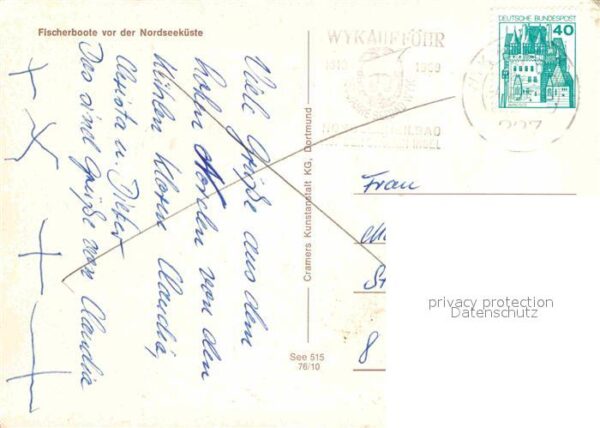 Fischerboote vor der Nordseeküste
Viele Grüße aus dem
hohen Norden von den
kühlen Klaren Claudia,
Christa u. Dieter
Das sind Grüße von Claudia
Cramers Kunstanstalt KG, Dortmund
See 515
76/10
WYK AUF FÖHR
1819
1969
DEUTSCHE BUNDESPOST
40
227
Frau
8
privacy protection
Datenschutz